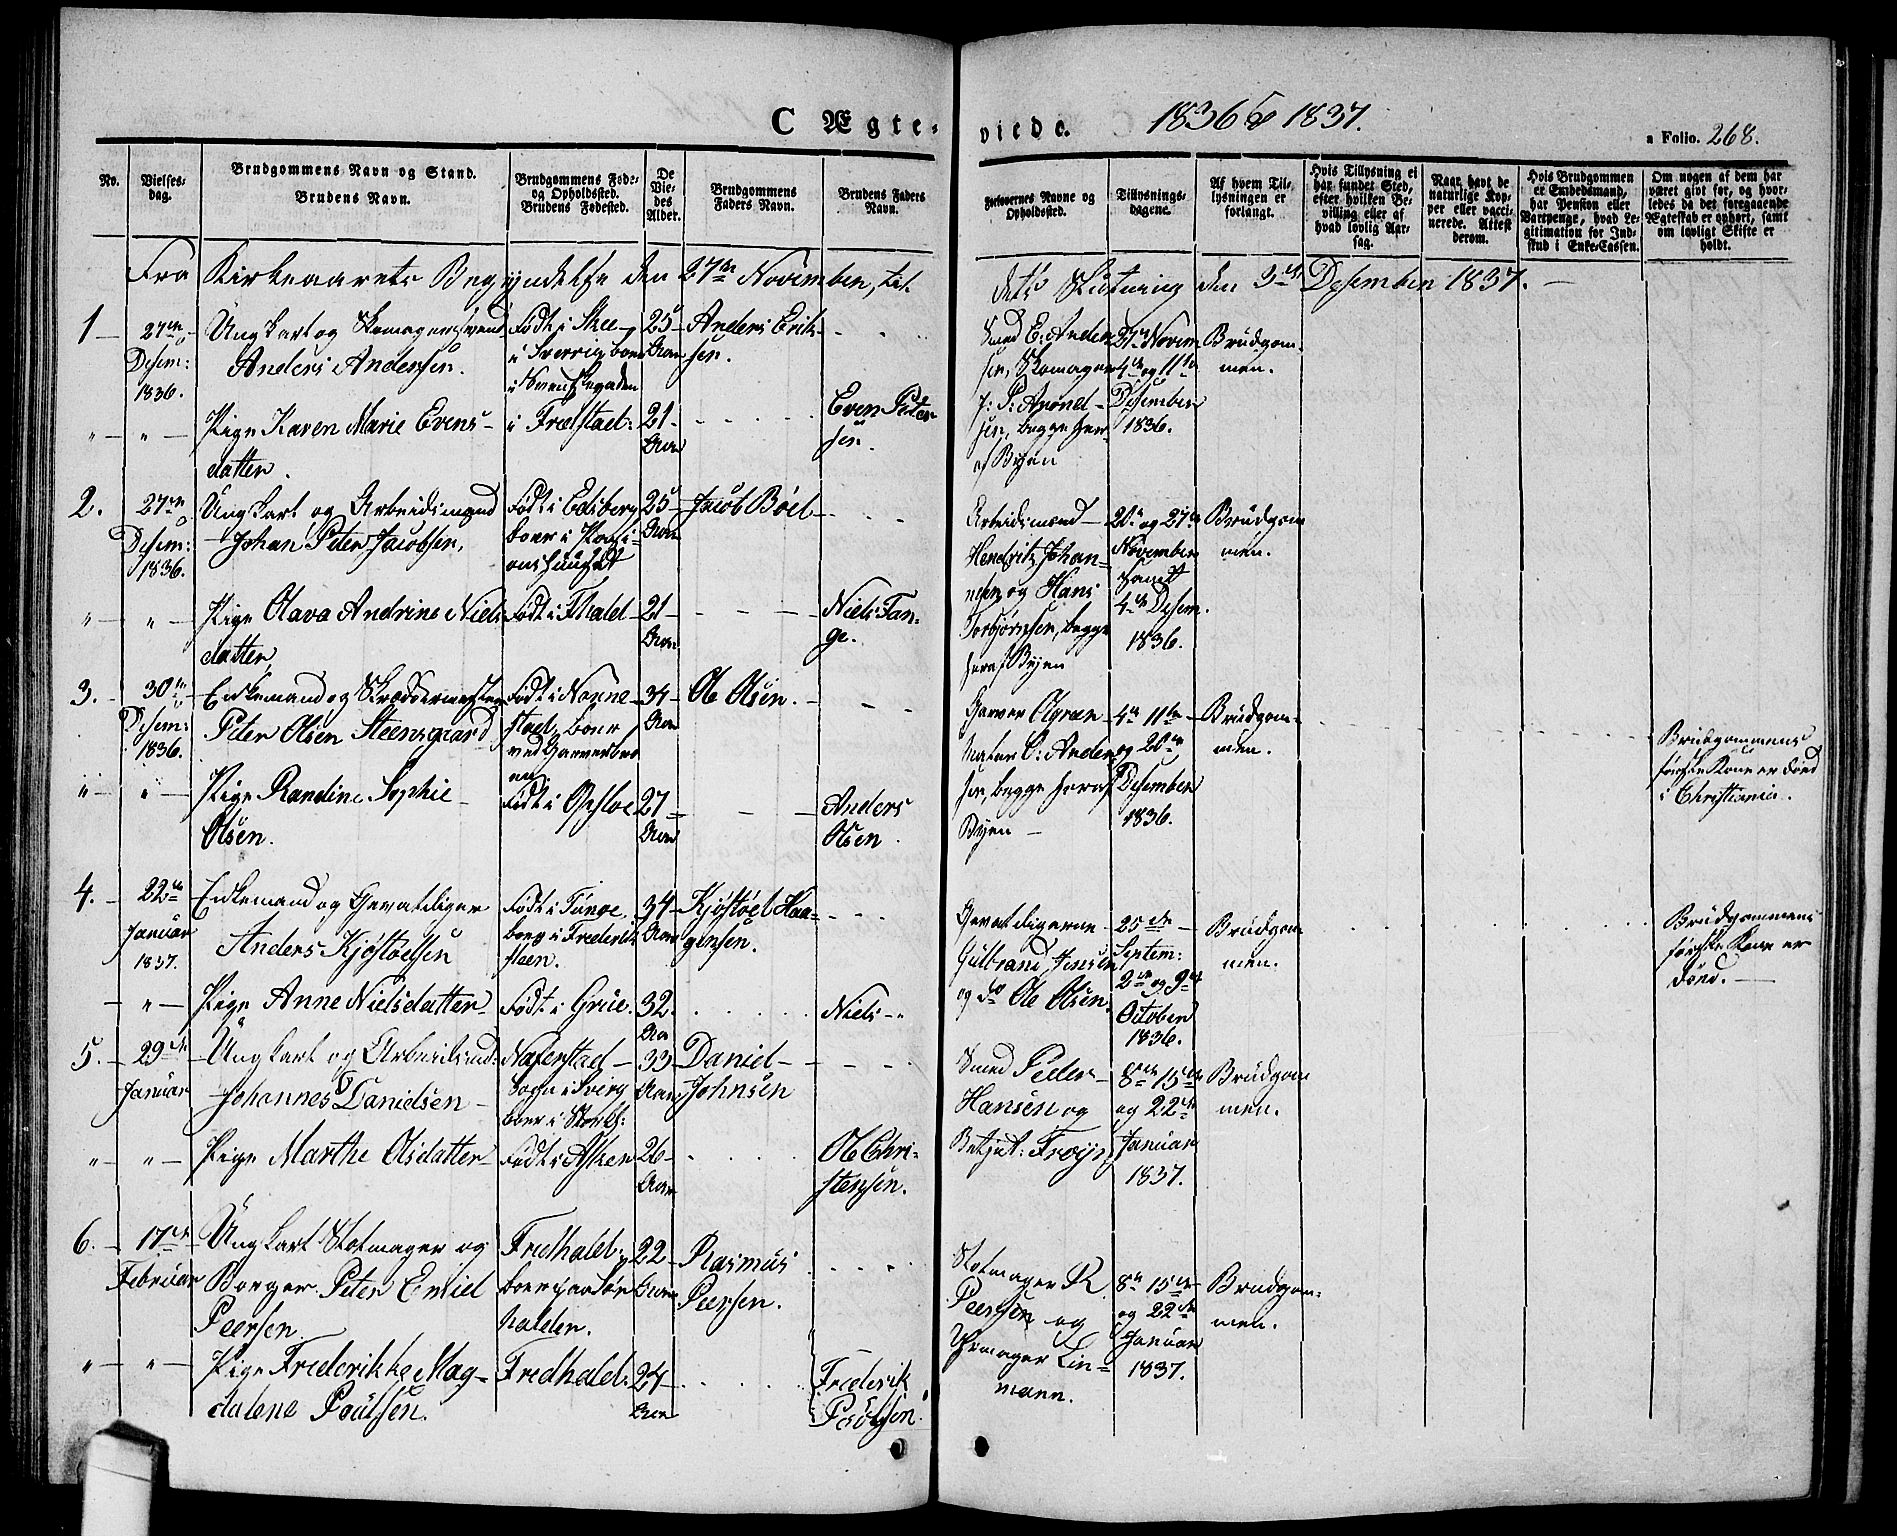 C Ægte- viede. 1836 & 1837.
a Folio. 268.
No.
Vielses-
dag.
Brudgommens Navn og Stand.
Brudens Navn.
Brudgommens Føde-
og Opholdssted.
Brudens Fødested.
De
Vie-
des
Alder.
Brudgommens
Faders Navn.
Brudens Faders
Navn.
Forlovernes Navne og
Opholdssted.
Tillysnings-
dagene.
Af hvem Til-
lysningen er
forlangt.
Hvis Tillysning ei
har fundet Sted,
efter hvilken Be-
villing eller af
hvad lovlig Aar-
sag.
Naar havt de
naturlige Kop-
per eller vacci-
nerede. Attest
derom.
Hvis Brudgommen
er Embedsmand,
har Pension eller
Vartpenge, hvad Le-
gitimation for Ind-
skud i Enke-Cassen.
Om nogen af dem har
været givt før, og hvor-
ledes da det foregaaende
Ægteskab er ophørt, samt
om lovligt Skifte er
holdt.
Fra Kirkeaarets Begyndelse den 27de November, til
dets Slutning den 3de Desember 1837.
1
27de
Desem:
1836.
Ungkarl og Skomagersvend
Anders Andersen.
Født i Skee
i Sverrig boer
25
Aar
Anders Erik-
sen.
Smed E: Ander
sen, Skomager
J: P: Arönd-
sen, begge her
af Byen
27 Novem
4de og 11te
Desember
1836.
Brudgom-
men.
Pige Karen Marie Evens-
datter.
i Fredstad:
21
Aar
Even Peter
sen.
2.
27de
Desem:
1836.
Ungkarl og Arbeidsmand
Johan Peter Jacobsen,
Født i Edsberg
boer i
25
Aar
Jacob Böel
Arbeidsmand
Hendrik Johan-
nesen og Hans
Torbjørnsen, begge
heraf Byen
20de og 27de
November
samt
4de Desem.
1836.
Brudgom
men.
Pige Olava Andrine Niels
datter
Født i Fhald
21
Aar
Niels Tan-
ge.
3.
30te
Desem:
1836.
Enkemand og Skræddermester
Peter Olsen Steensgaard
Født i Nanne-
stad, boer
ved
34
Aar
Ole Olsen.
Garver Olgreen
Maler C: Ander
sen, begge heraf
Byen
4de 11te
og 20de
Desember
1836.
Brudgom-
men.
Brudgommens
første Kone er død
i Christiania.
Pige Randine Sophie
Olsen.
Født i Opsloe
27
Aar
Anders
Olsen
4.
22de
Januar
1837.
Enkemand og Gevaldiger
Anders Kjøstoelsen
Født i Tune,
boer i Frederik
steen.
34
Aar
Kjøstoel Haa-
gensen.
Gevaldigerne
Gulbrand Jensen
og do Ole Olsen.
25de
Septem:
2de og 9de
October
1836.
Brudgom
men.
Brudgommens
første Kone er
død.
Pige Anne Nielsdatter
Født i Grue.
32.
Aar
Niels
5.
29de
Januar
Ungkarl og Arbeidsmd:
Johannes Danielsen
Naverstad
Sogn i Sverig
boer i
33
Aar
Daniel
Johnsen
Smed Peder
Hansen og
Betjent: Frøys
8de 15de
og 22de
Januar
1837.
Brudgom
men.
Pige Marthe Olsdatter
Født i Asker
26
Aar
Ole Chri-
stensen.
6.
17de
Februar
Ungkarl Stolmager og
Borger Peter Emiel
Peersen.
Fredhald:
boer paa Søn
halden.
22
Aar
Rasmus
Peersen.
Stolmager R
Peersen og
Uhrmager Lin-
mann.
8de 15de
og 22de
Januar
1837.
Brudgom-
men.
Pige Frederikke Mag-
dalene Poulsen.
Fredhald:
24
Aar
Frederik
Poulsen.